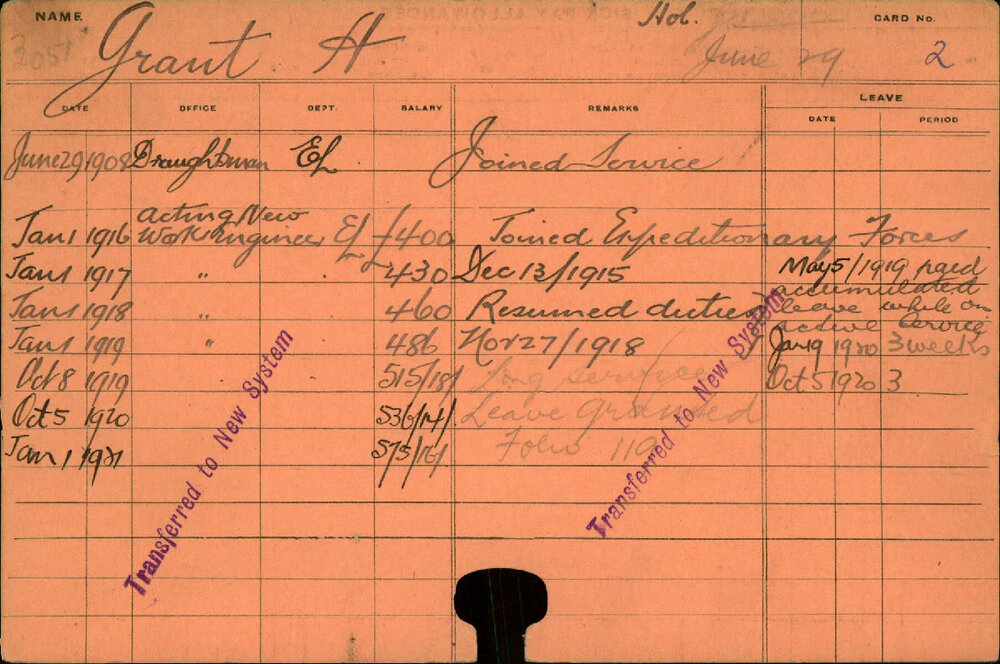 NAME Hob. CARD No.
Grant H June 29 2
3051
DATE OFFICE DEPT. SALARY REMARKS LEAVE
DATE PERIOD
June 29 1908 Draughtsman EL Joined Service
Jan 1 1916 Acting New Work Engineer EL £400 Joined Expeditionary Forces
Jan 1 1917 " £430 Dec 13/1915 May 5/1919 paid
accumulated
Jan 1 1918 " 460 Resumed duties leave while on
active service
Jan 1 1919 " 486 Nov 27/1918 Jan 19 1920 3 weeks
Oct 8 1919 515/18/ Long service Oct 5 1920 3
Oct 5 1920 536/14/ Leave Granted
Jan 1 1921 575/16/ Folio 119
Transferred to New System
Transferred to New System